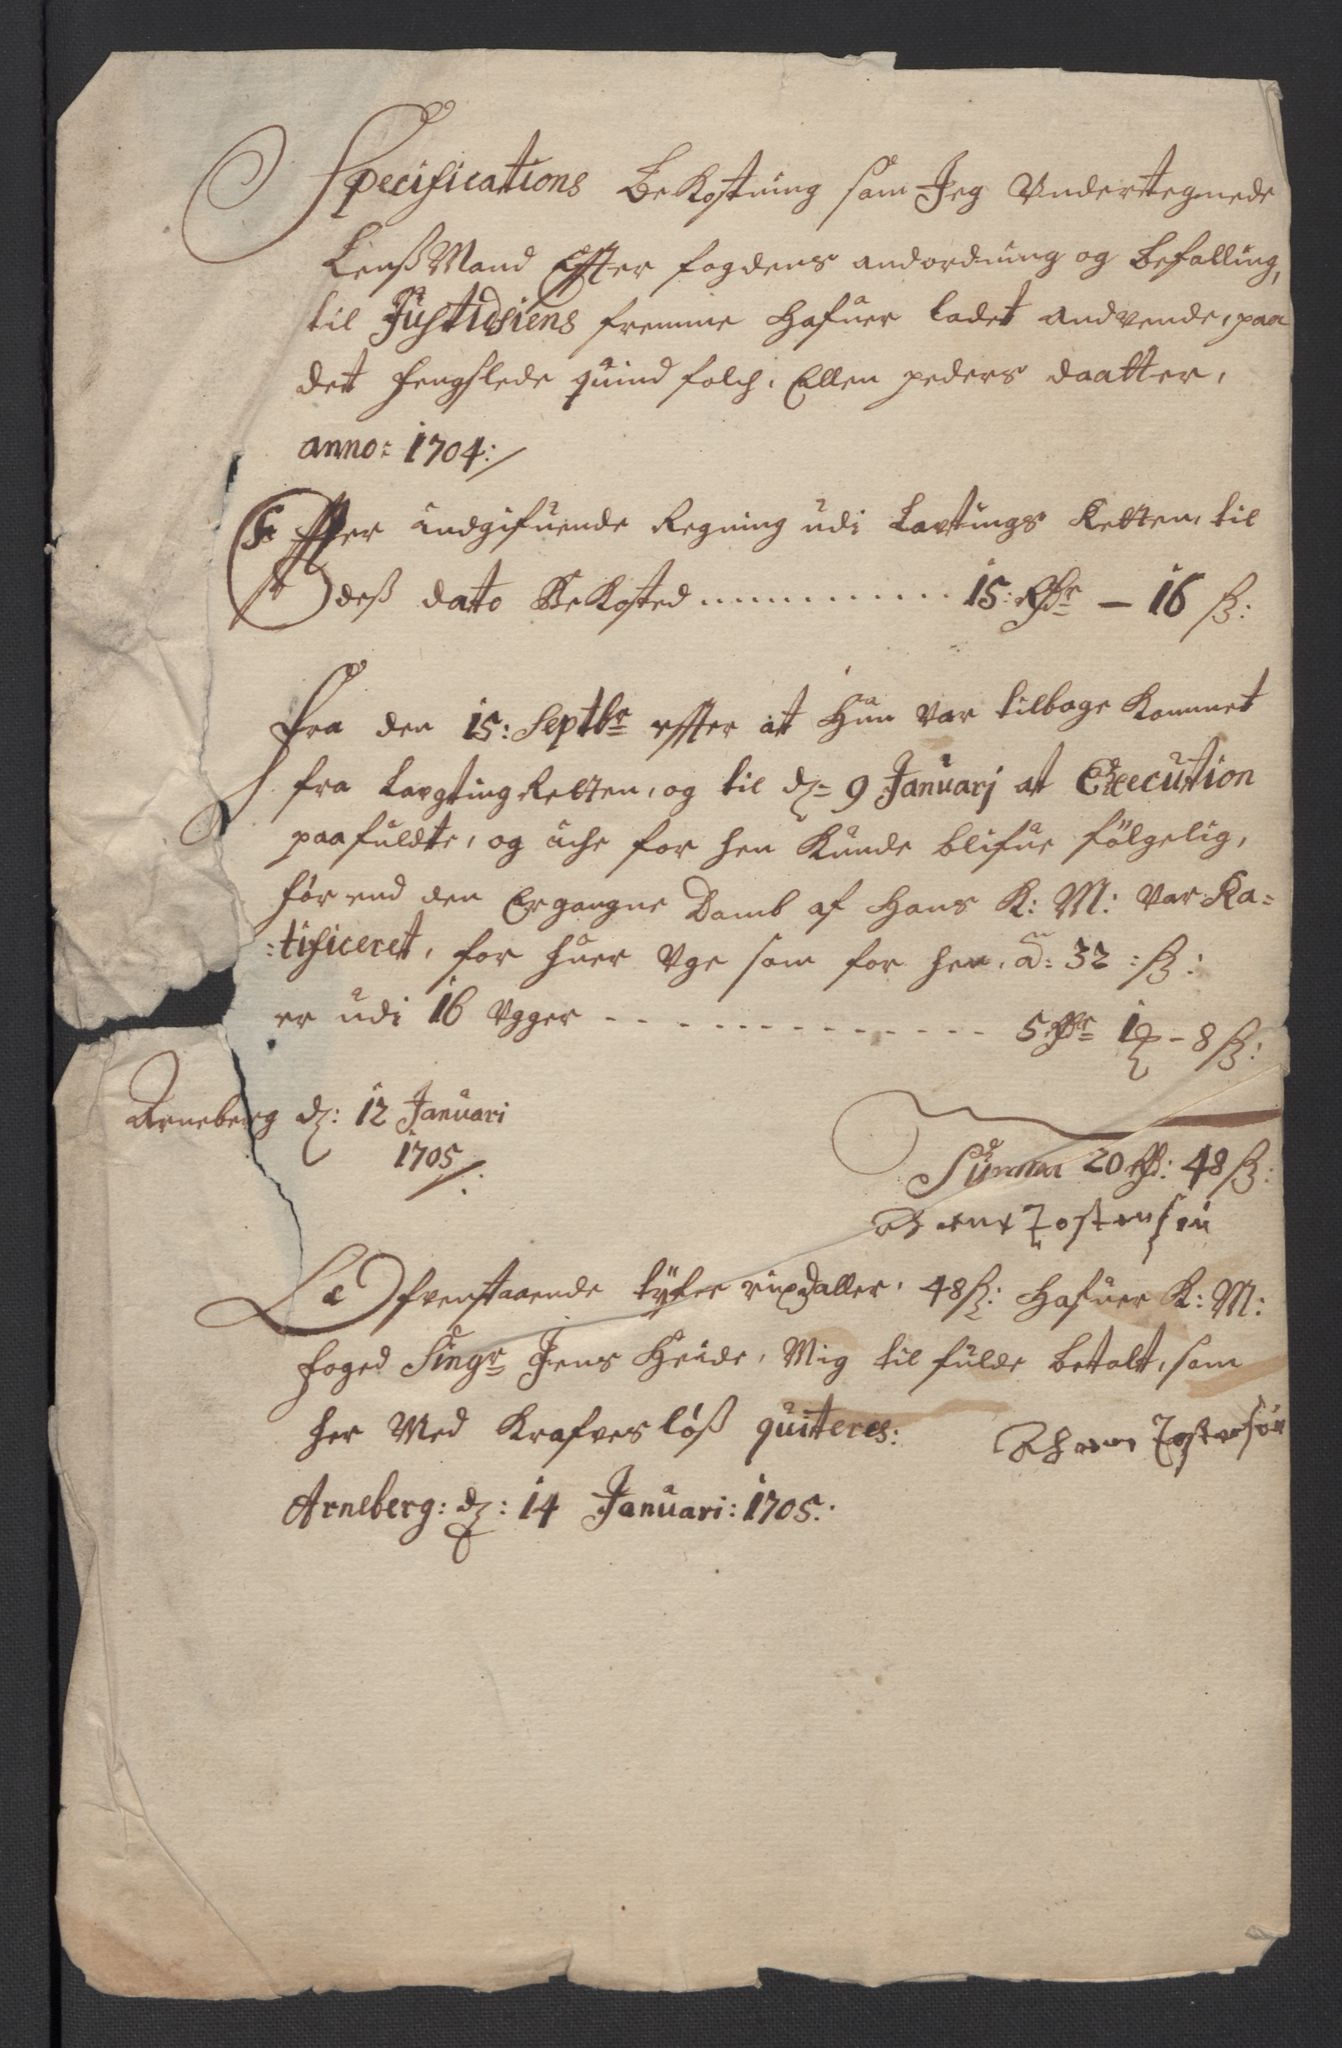 Specifications Bekostning som Jeg Vndertegnede
Lenß Mand Effter fogdens andordning og befalling,
til Justidsiens fremme hafuer ladet andvende, paa
det fengslede quindfolch, Ellen peders daatter,
anno: 1704:/
Effter indgifuende Regning udi Lavtings Retten, til
deß dato Bekosted ............ 15: Rdr – 16 ß:
Fra den 15: Septbr effter at hun var tilbage kommet
fra Lavgting Retten, og til d: 9 Januarj at Execution
paafuldte, og iche før hen kunde blifue følgelig,
før end den Ergangne Domb af Hans K: M: var Ra=
:tificeret, for huer Vge som før hen, a: 32 :ß:
er udi 16 Vgger - - - - - - - - - - - - - 5 Rdr 1 – 8 ß:
Arneberg d: 12 Januari
1705/:
Summa 20 Rd: 48 ß:
Tostensen
Ofvenstaaende tyfue rixdaller, 48 ß: hafuer K: M:
foged Singr Jens Heide, Mig til fulde betalt, som
her Med Krafvesløß quiteres:
Tostensøn
Arneberg: d: 14 Januari: 1705: